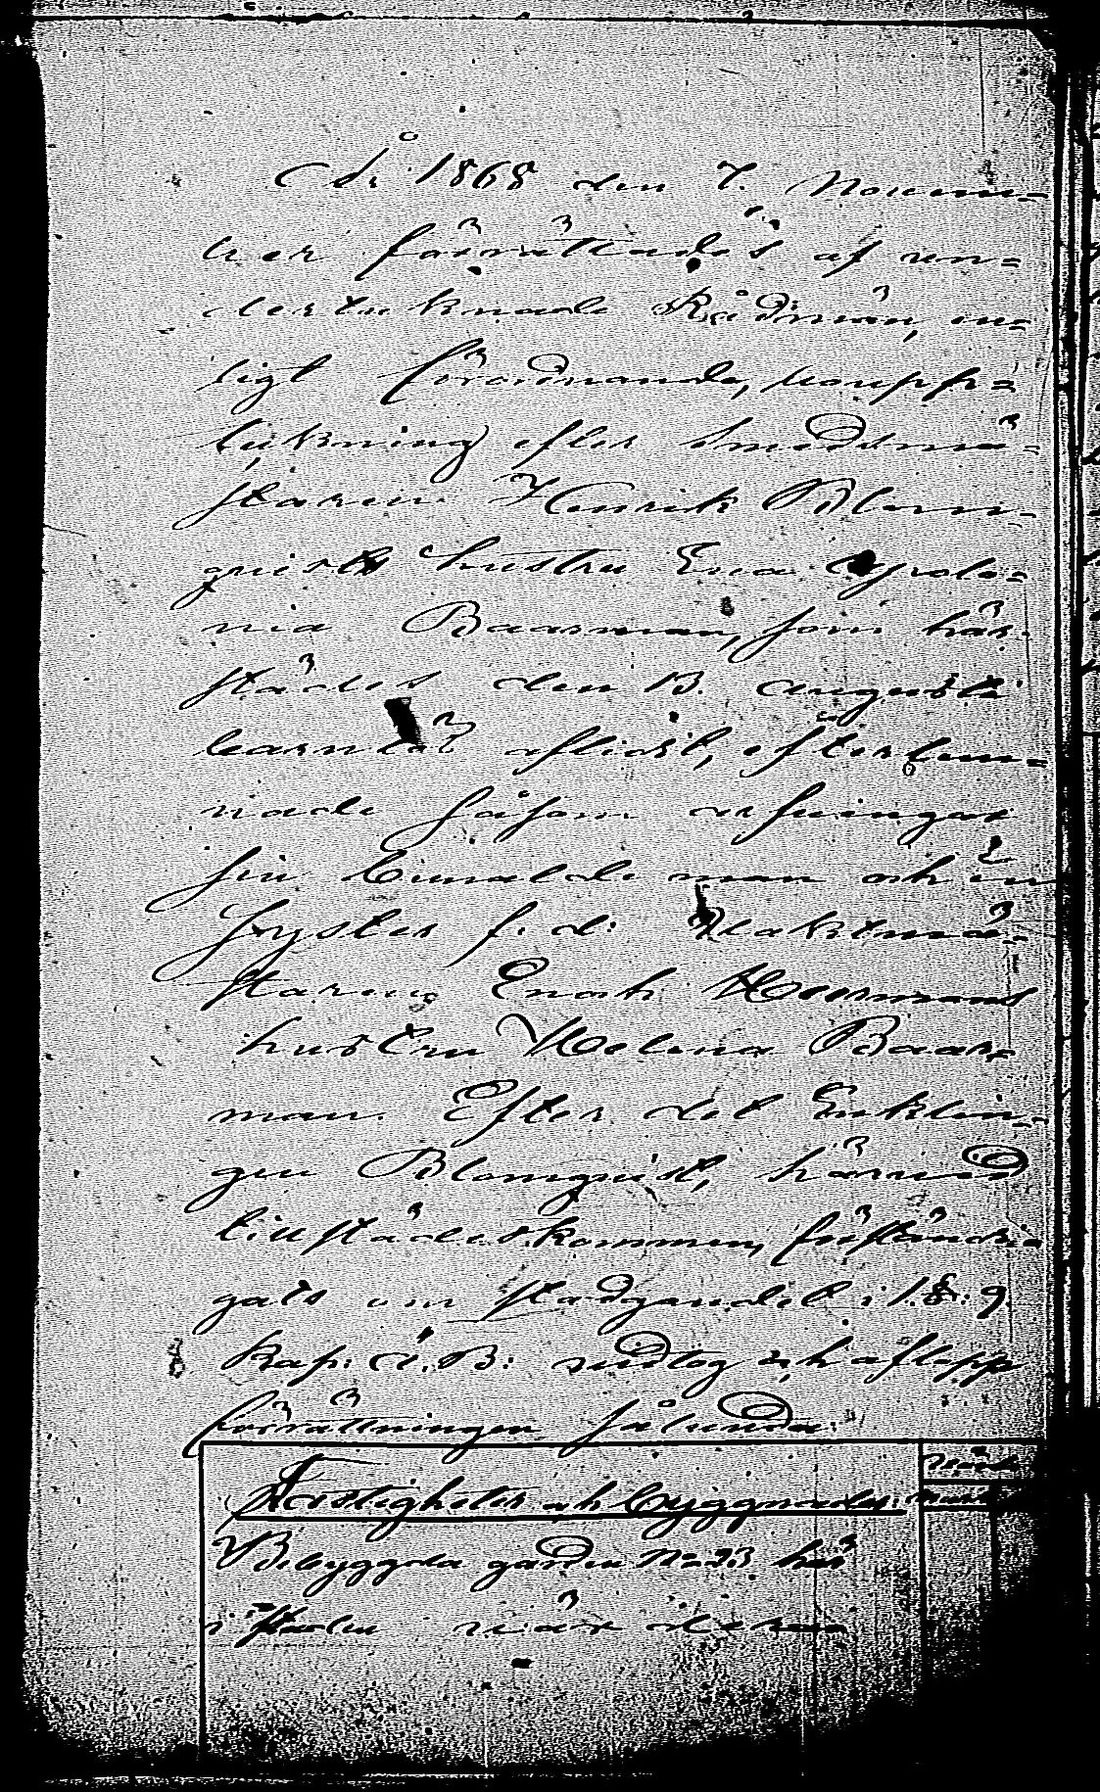 År 1868 den 7. Novem-
ber förrättades af un-
dertecknade Rådmän, en-
ligt förordnande, bouppt-
teckning efter Smedsmä-
staren Henrik Blom-
qvists hustru Eva Apolo-
nia Baarman, som här-
städes den 13. Augusti
barnlös aflidit, efterlem-
nade såsom arfvingar
sin benämnde man och en
syster f. d. Vaktmä-
staren Enoch Heermans
hustru Helena Baar-
man. Efter det Enklin-
gen Blomqvist, härvid
tillstädeskommen, förständi-
gats om stadgandet i 1. §. 9
Kap. Ä. B. vidtog och aflopp
förrättningen sålunda:
Fastigheter och byggnader:
Bebyggda gården No 23 här
i staden